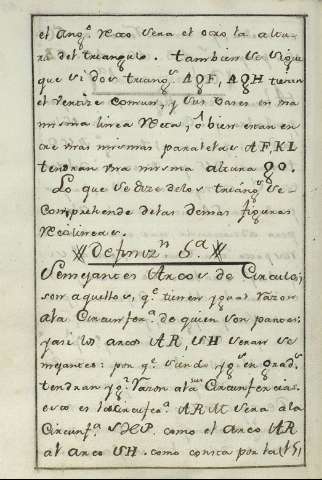 el ang.º Recto sera el otro la altu-
ra del triangulo. tambien se sigue
que si dos triang.s AGF, AGH tienen
el vertize comun, y sus bases en una
misma linea Recta, ô bien estan en-
tre unas mismas paralelas AF, KL
tendran una misma altura GO.
Lo que se dize de los triáng.s se
comprehende de las demas figuras
Rectilineas.
Definiz.n 5.a
Semejantes Arcos de Circulos,
son aquellos, q.e tienen igual razon
a la Circunfer.a de quien son partes:
asi los arcos AR, SH seran se-
mejantes: por q.e siendo ig.s en grad.s
tendran ig.l razon a las Circunferencias
esto es la Circunfer.a ARM sera a la
Circunf.a SHP. como el arco AR
al arco SH. como consta por la (15)